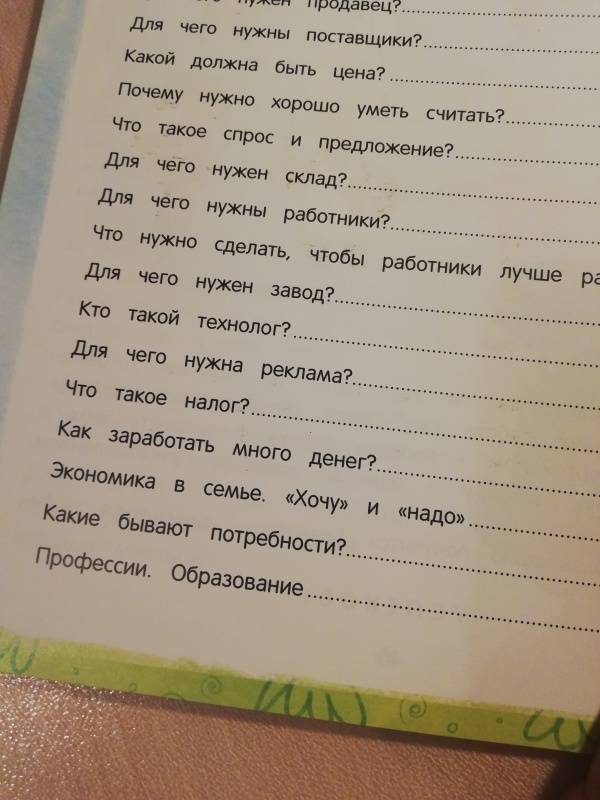 нужен продавец?
Для чего нужны поставщики?
Какой должна быть цена?
Почему нужно хорошо уметь считать?
Что такое спрос и предложение?
Для чего нужен склад?
Для чего нужны работники?
Что нужно сделать, чтобы работники лучше ра
Для чего нужен завод?
Кто такой технолог?
Для чего нужна реклама?
Что такое налог?
Как заработать много денег?
Экономика в семье. «Хочу» и «надо»
Какие бывают потребности?
Профессии. Образование